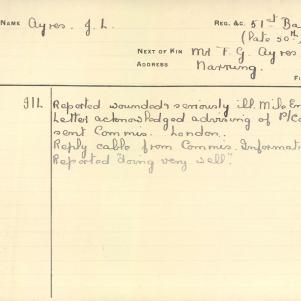 NAME Ayres. J. L. REG. &C. 51st Ba
(late 50th
NEXT OF KIN Mr F. G. Ayres
ADDRESS Narrung.
F
Ill Reported wounded & seriously ill. Mile En
Letter acknowledged advising of P/C
sent Commis. London.
Reply cable from Commis. Informat
Reported "doing very well".